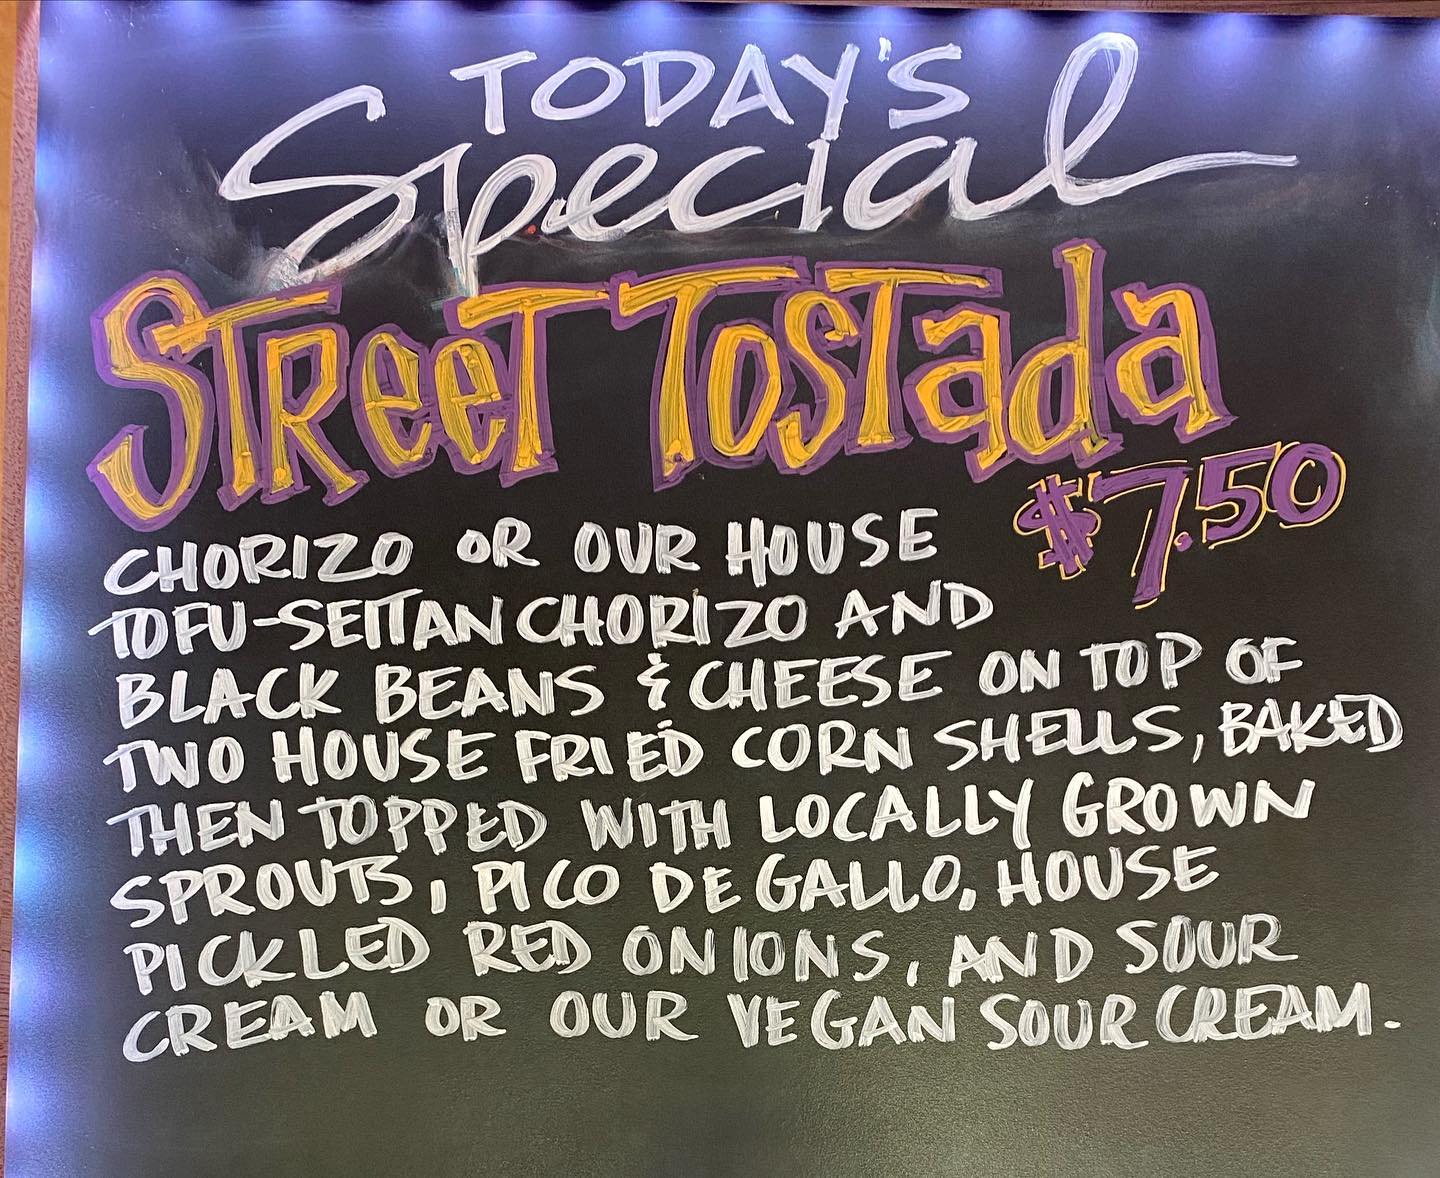 TODAY'S
Special
STREET TOSTADA
$7.50
CHORIZO OR OUR HOUSE
TOFU-SEITAN CHORIZO AND
BLACK BEANS & CHEESE ON TOP OF
TWO HOUSE FRIED CORN SHELLS, BAKED
THEN TOPPED WITH LOCALLY GROWN
SPROUTS, PICO DE GALLO, HOUSE
PICKLED RED ONIONS, AND SOUR
CREAM OR OUR VEGAN SOUR CREAM.